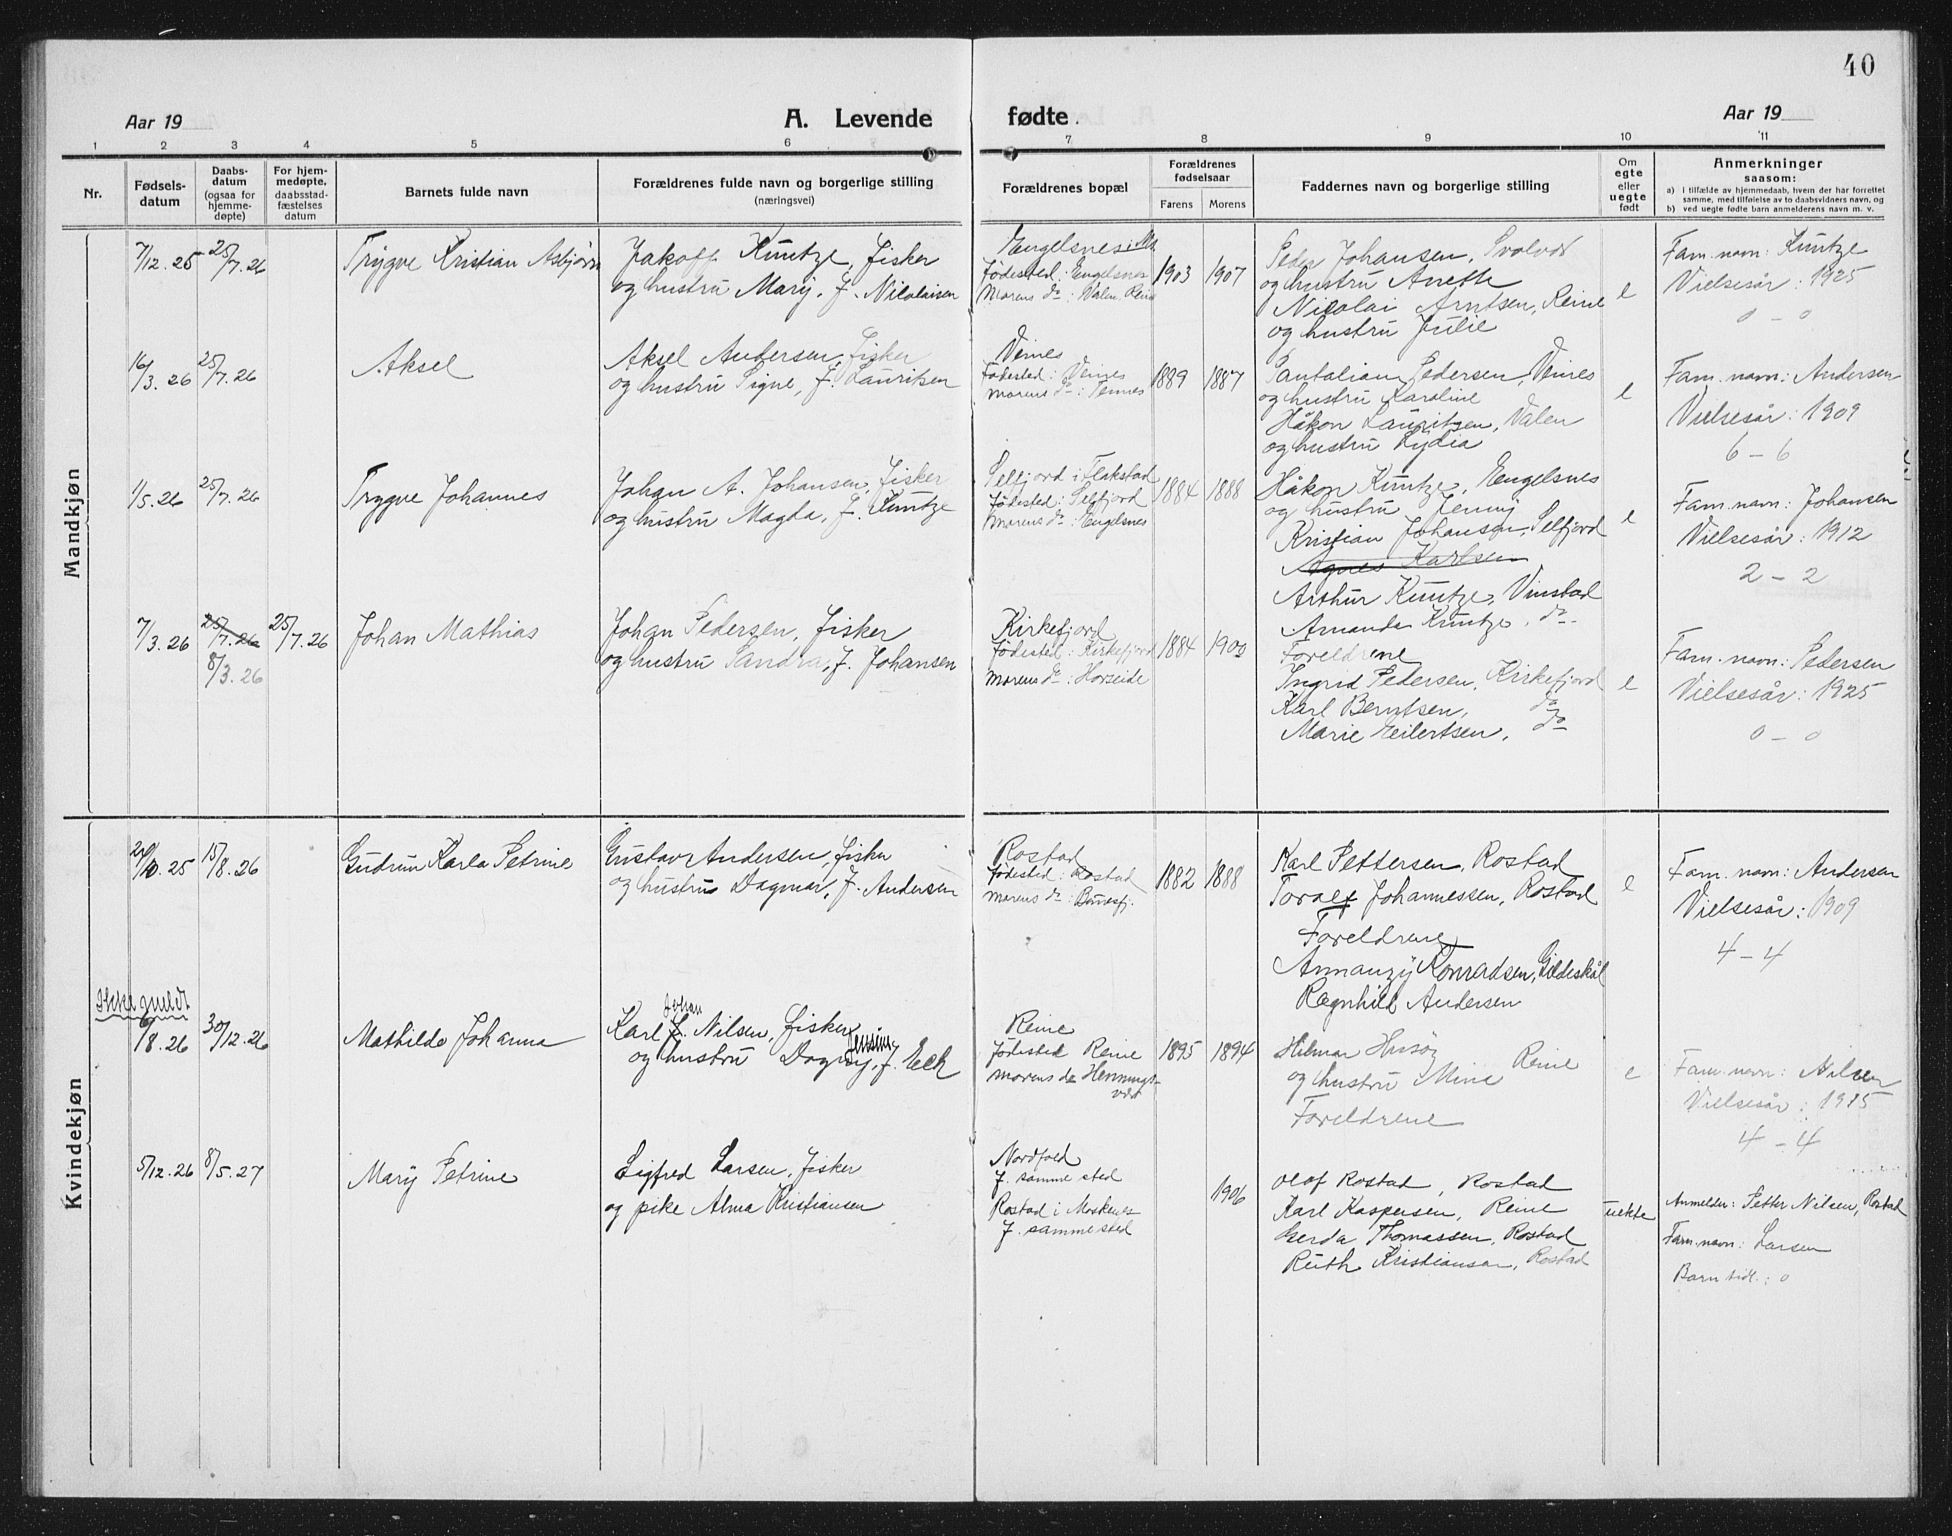 40
Aar 19
A. Levende fødte.
Aar 19
1 2 3 4 5 6 7 8 9 10 11
Nr.
Fødsels-
datum
Daabs-
datum
(ogsaa for
hjemme-
døpte)
For hjem-
medøpte,
daabsstad-
fæstelses
datum
Barnets fulde navn
Forældrenes fulde navn og borgerlige stilling
(næringsvei)
Forældrenes bopæl
Forældrenes
fødselsaar
Farens Morens
Faddernes navn og borgerlige stilling
Om
egte
eller
uegte
født
Anmerkninger
saasom:
a) I tilfælde av hjemmedaab, hvem der har forrettet
samme, med tilføielse av to daabsvidners navn, og
b) ved uegte fødte barn anmelderens navn m. v.
Mandkjøn
7/12.25 25/7.26 Trygve Kristian Asbjørn
Jakoff Kuntze, fisker
og hustru Mary, f. Nilolaisen
Engelsnes
Fødested: Engelsnes
Morens do: Valen, Reine
1903 1907
Peder Johansen, Svolvær
og hustru Anette
Nicolai Arntsen, Reine
og hustru Julie
e
Fam. navn: Kuntze
Vielsesår: 1925
0 - 0
16/3.26 25/7.26 Aksel
Aksel Andersen, fisker
og hustru Signe, f. Lauritsen
Veines
Fødested: Veines
Morens do: Tennes
1889 1887
Pantalian Pedersen, Veines
og hustru Karoline
Håkon Lauritsen, Valen
og hustru Lydia
e
Fam. navn: Andersen
Vielsesår: 1909
6 - 6
1/5.26 25/7.26 Trygve Johannes
Johan A. Johansen, fisker
og hustru Magda, f. Kuntze
Selfjord i Flakstad
Fødested: Selfjord
Morens do: Engelsnes
1884 1888
Håkon Kuntze, Engelsnes
og hustru Jenny
Kristian Johansen, Selfjord
Agnes Karlsen
Arthur Kuntze, Vinstad
Amanda Kuntze, do
e
Fam. navn: Johansen
Vielsesår: 1912
2 - 2
7/3.26 25/7.26 25/7.26 Johan Mathias
8/3.26
Johan Pedersen, fisker
og hustru Sandra, f. Johansen
Kirkefjord
Fødested: Kirkefjord
Morens do: Horseide
1884 1900
Foreldrene
Ingrid Pedersen, Kirkefjord
Karl Berntsen, do
Marie Eilertsen, do
e
Fam. navn: Pedersen
Vielsesår: 1925
0 - 0
Kvindekjøn
/10.25 15/8.26 Gudrun Karla Petrine
Gustav Andersen, fisker
og hustru Dagmar, f. Andersen
Rostad
Fødested: Rostad
Morens do: Bunesfj.
1882 1888
Karl Pettersen, Rostad
Toralf Johannessen, Rostad
Foreldrene
Annanzy Konradsen, Gildeskål
Ragnhild Andersen
e
Fam. navn: Andersen
Vielsesår: 1909
4 - 4
Ikke meldt
/8.26 30/12.26 Mathilde Johanna
Johan
Karl J. Nilsen, fisker
Jensine
og hustru Dagny, f. Eek
Reine
Fødested Reine
Morens do Hennings-
vær
1895 1894
Hilmar Husøy Reine
og hustru Mine
Foreldrene
e
Fam. navn: Nilsen
Vielsesår: 1915
4 - 4
5/12.26 8/5.27 Mary Petrine
Sigfred Larsen, fisker
og pike Alma Kristiansen
Nordfold
f. samme sted
Rostad i Moskenes
f. samme sted
1906
Olaf Rostad, Rostad
Karl Kaspersen, Reine
Gerda Thomassen, Rostad
Ruth Kristiansen, Rostad
uekte
Anmelder: Petter Nilsen, Rostad
Fam. navn: Larsen
Barn tidl.: 0